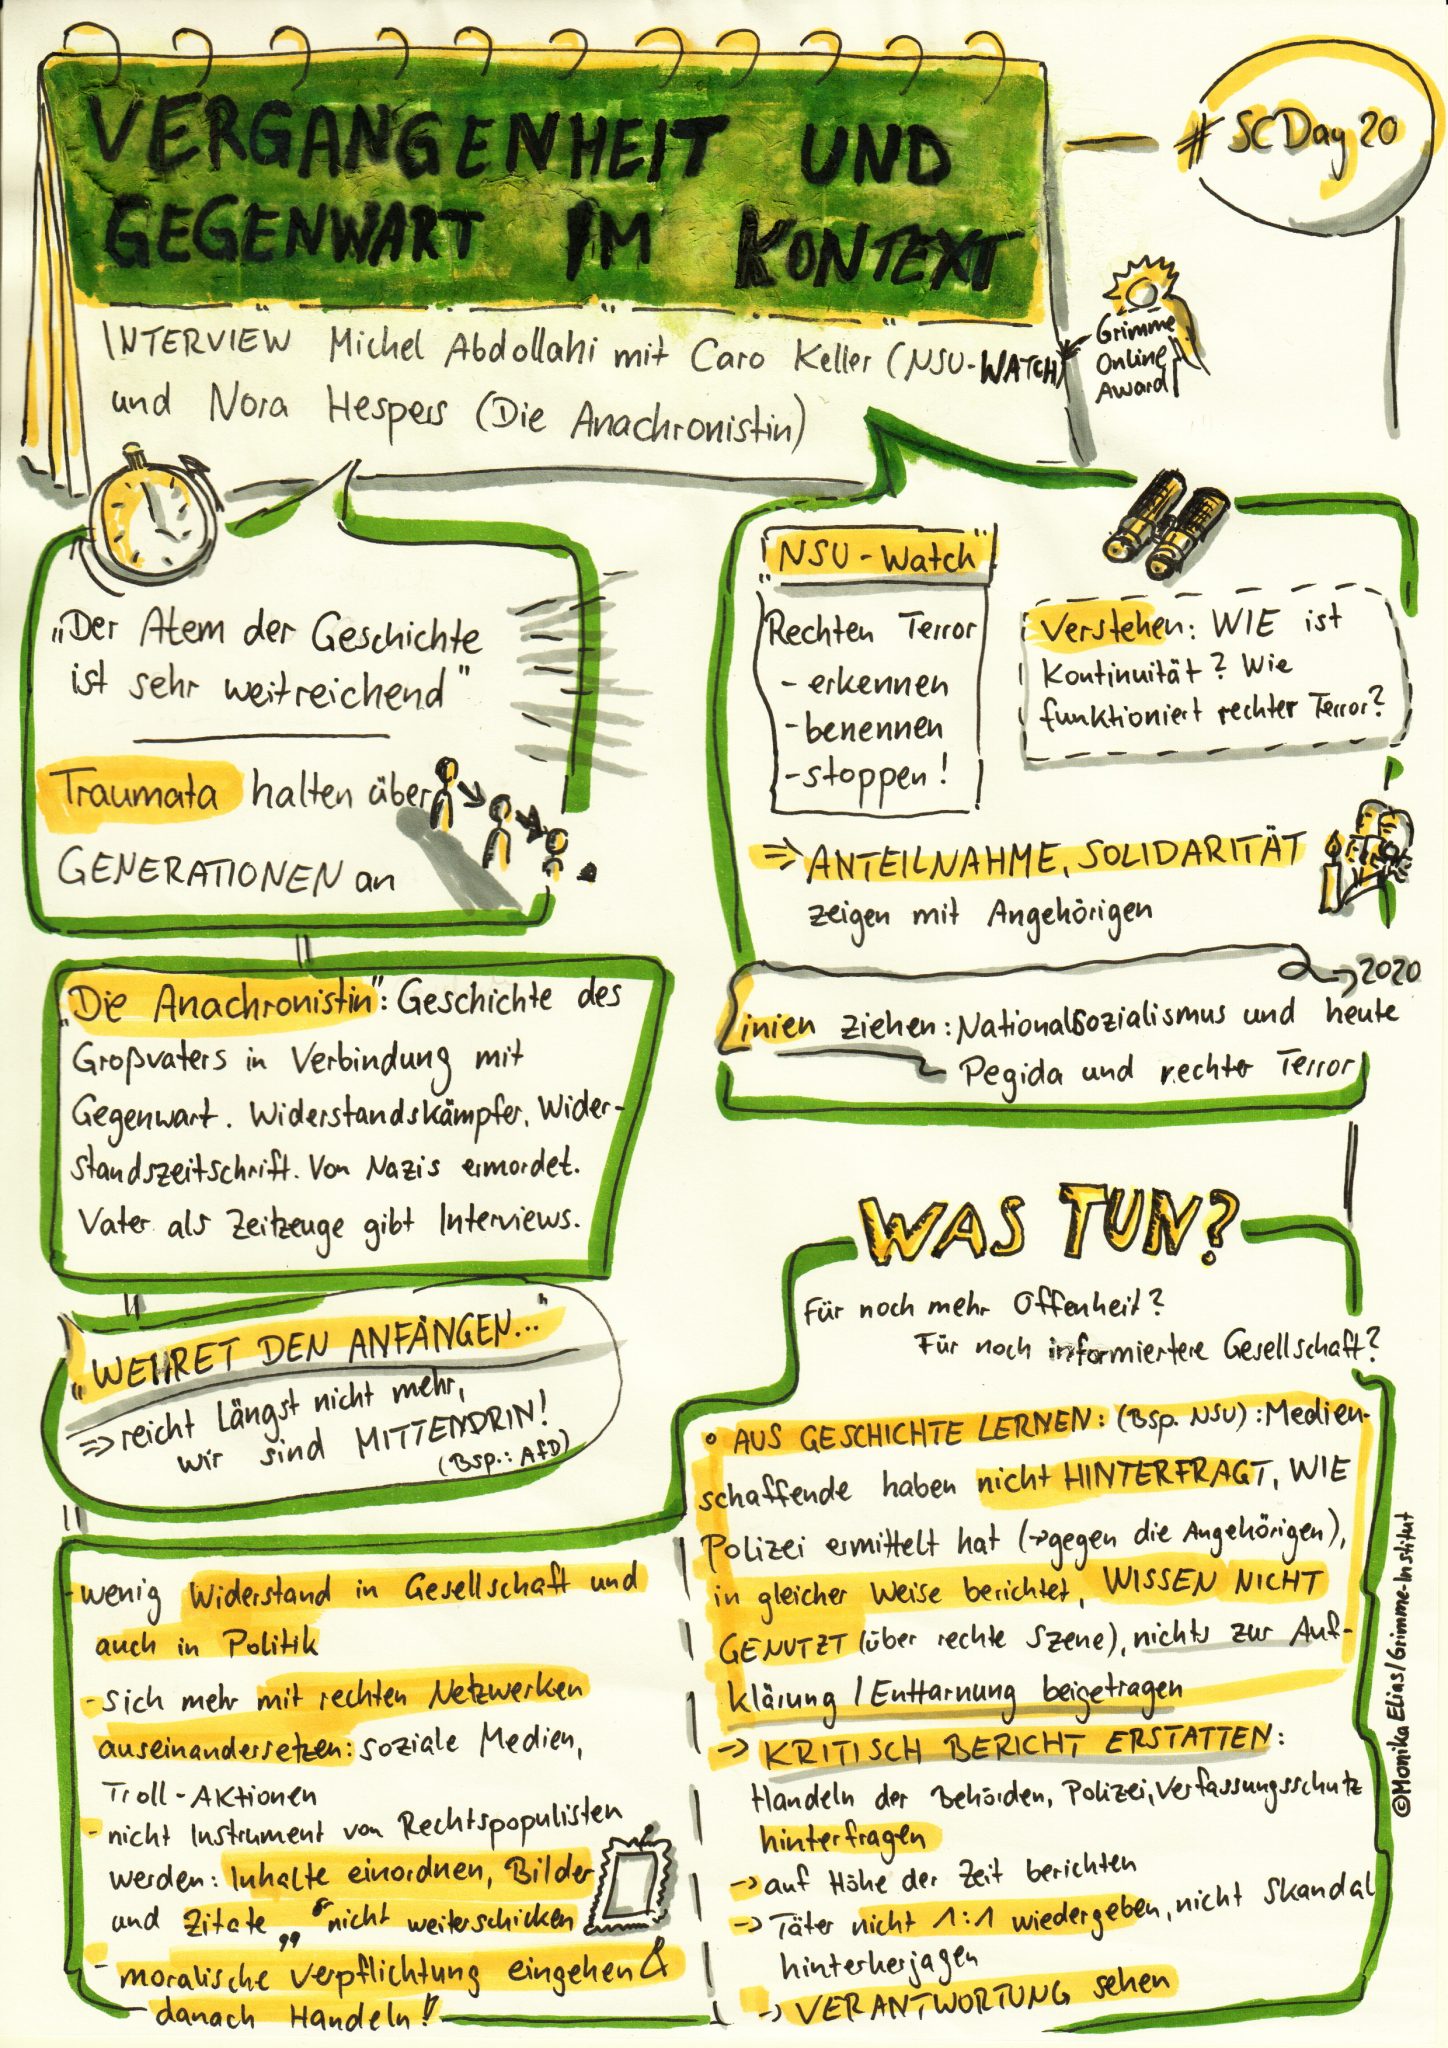 VERGANGENHEIT UND
GEGENWART IM KONTEXT
# SCDay20
INTERVIEW Michel Abdollahi mit Caro Keller (NSU-WATCH)
und Nora Hespers (Die Anachronistin)
Grimme
Online
Award
„Der Atem der Geschichte
ist sehr weitreichend"
Traumata halten über
GENERATIONEN an
„Die Anachronistin": Geschichte des
Großvaters in Verbindung mit
Gegenwart. Widerstandskämpfer, Wider-
standszeitschrift. Von Nazis ermordet.
Vater als Zeitzeuge gibt Interviews.
„WEHRET DEN ANFÄNGEN..."
=> reicht Längst nicht mehr,
wir sind MITTENDRIN!
(Bsp.: AfD)
- wenig Widerstand in Gesellschaft und
auch in Politik
- sich mehr mit rechten Netzwerken
auseinandersetzen: soziale Medien,
Troll-Aktionen
- nicht Instrument von Rechtspopulisten
werden: Inhalte einordnen, Bilder
und Zitate „ " nicht weiterschicken
- moralische Verpflichtung eingehen &
danach Handeln!
„NSU-Watch"
Rechten Terror
- erkennen
- benennen
- stoppen!
Verstehen: WIE ist
Kontinuität? Wie
funktioniert rechter Terror?
=> ANTEILNAHME, SOLIDARITÄT
zeigen mit Angehörigen
→ 2020
Linien ziehen: Nationalsozialismus und heute
Pegida und rechter Terror
WAS TUN?
Für noch mehr Offenheit?
Für noch informiertere Gesellschaft?
• AUS GESCHICHTE LERNEN: (Bsp. NSU): Medien-
schaffende haben nicht HINTERFRAGT, WIE
Polizei ermittelt hat (→ gegen die Angehörigen),
in gleicher Weise berichtet, WISSEN NICHT
GENUTZT (über rechte Szene), nichts zur Auf-
klärung / Enttarnung beigetragen
→ KRITISCH BERICHT ERSTATTEN:
Handeln der Behörden, Polizei, Verfassungsschutz
hinterfragen
→ auf Höhe der Zeit berichten
→ Täter nicht 1:1 wiedergeben, nicht Skandal
hinterherjagen
→ VERANTWORTUNG sehen
©Monika Elias/Grimme-Institut